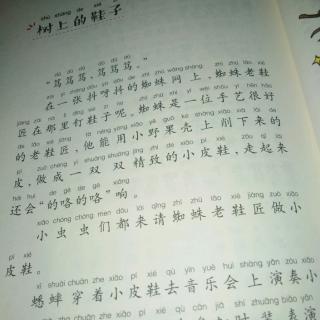 shù shàng de xié
树上的鞋子
dǔ dǔ dǔ dǔ dǔ dǔ
“笃笃笃，笃笃笃。”
zài yì zhāng dǒu yā dǒu de zhī zhū wǎng shàng zhī zhū lǎo xié
在一张抖呀抖的蜘蛛网上，蜘蛛老鞋
匠在那里钉鞋子呢。蜘蛛是一位手艺很好
de lǎo xié jiàng tā néng yòng xiǎo yě guǒ ké shàng xiāo xià lái de
的老鞋匠，他能用小野果壳上削下来的
pí zuò chéng yì shuāng shuāng jīng zhì de xiǎo pí xié zǒu qǐ lá
皮，做成一双双精致的小皮鞋，走起来
hái huì de gē de gē xiǎng
还会“的咯的咯”响。
xiǎo chóng chóng men dōu lái qǐng zhī zhū lǎo xié jiàng zuò xiǎo
小虫虫们都来请蜘蛛老鞋匠做小
pí xié
皮鞋。
xī shuài chuān zhe xiǎo pí xié qù yīn yuè huì shàng yǎn zòu xiǎo
蟋蟀穿着小皮鞋去音乐会上演奏小